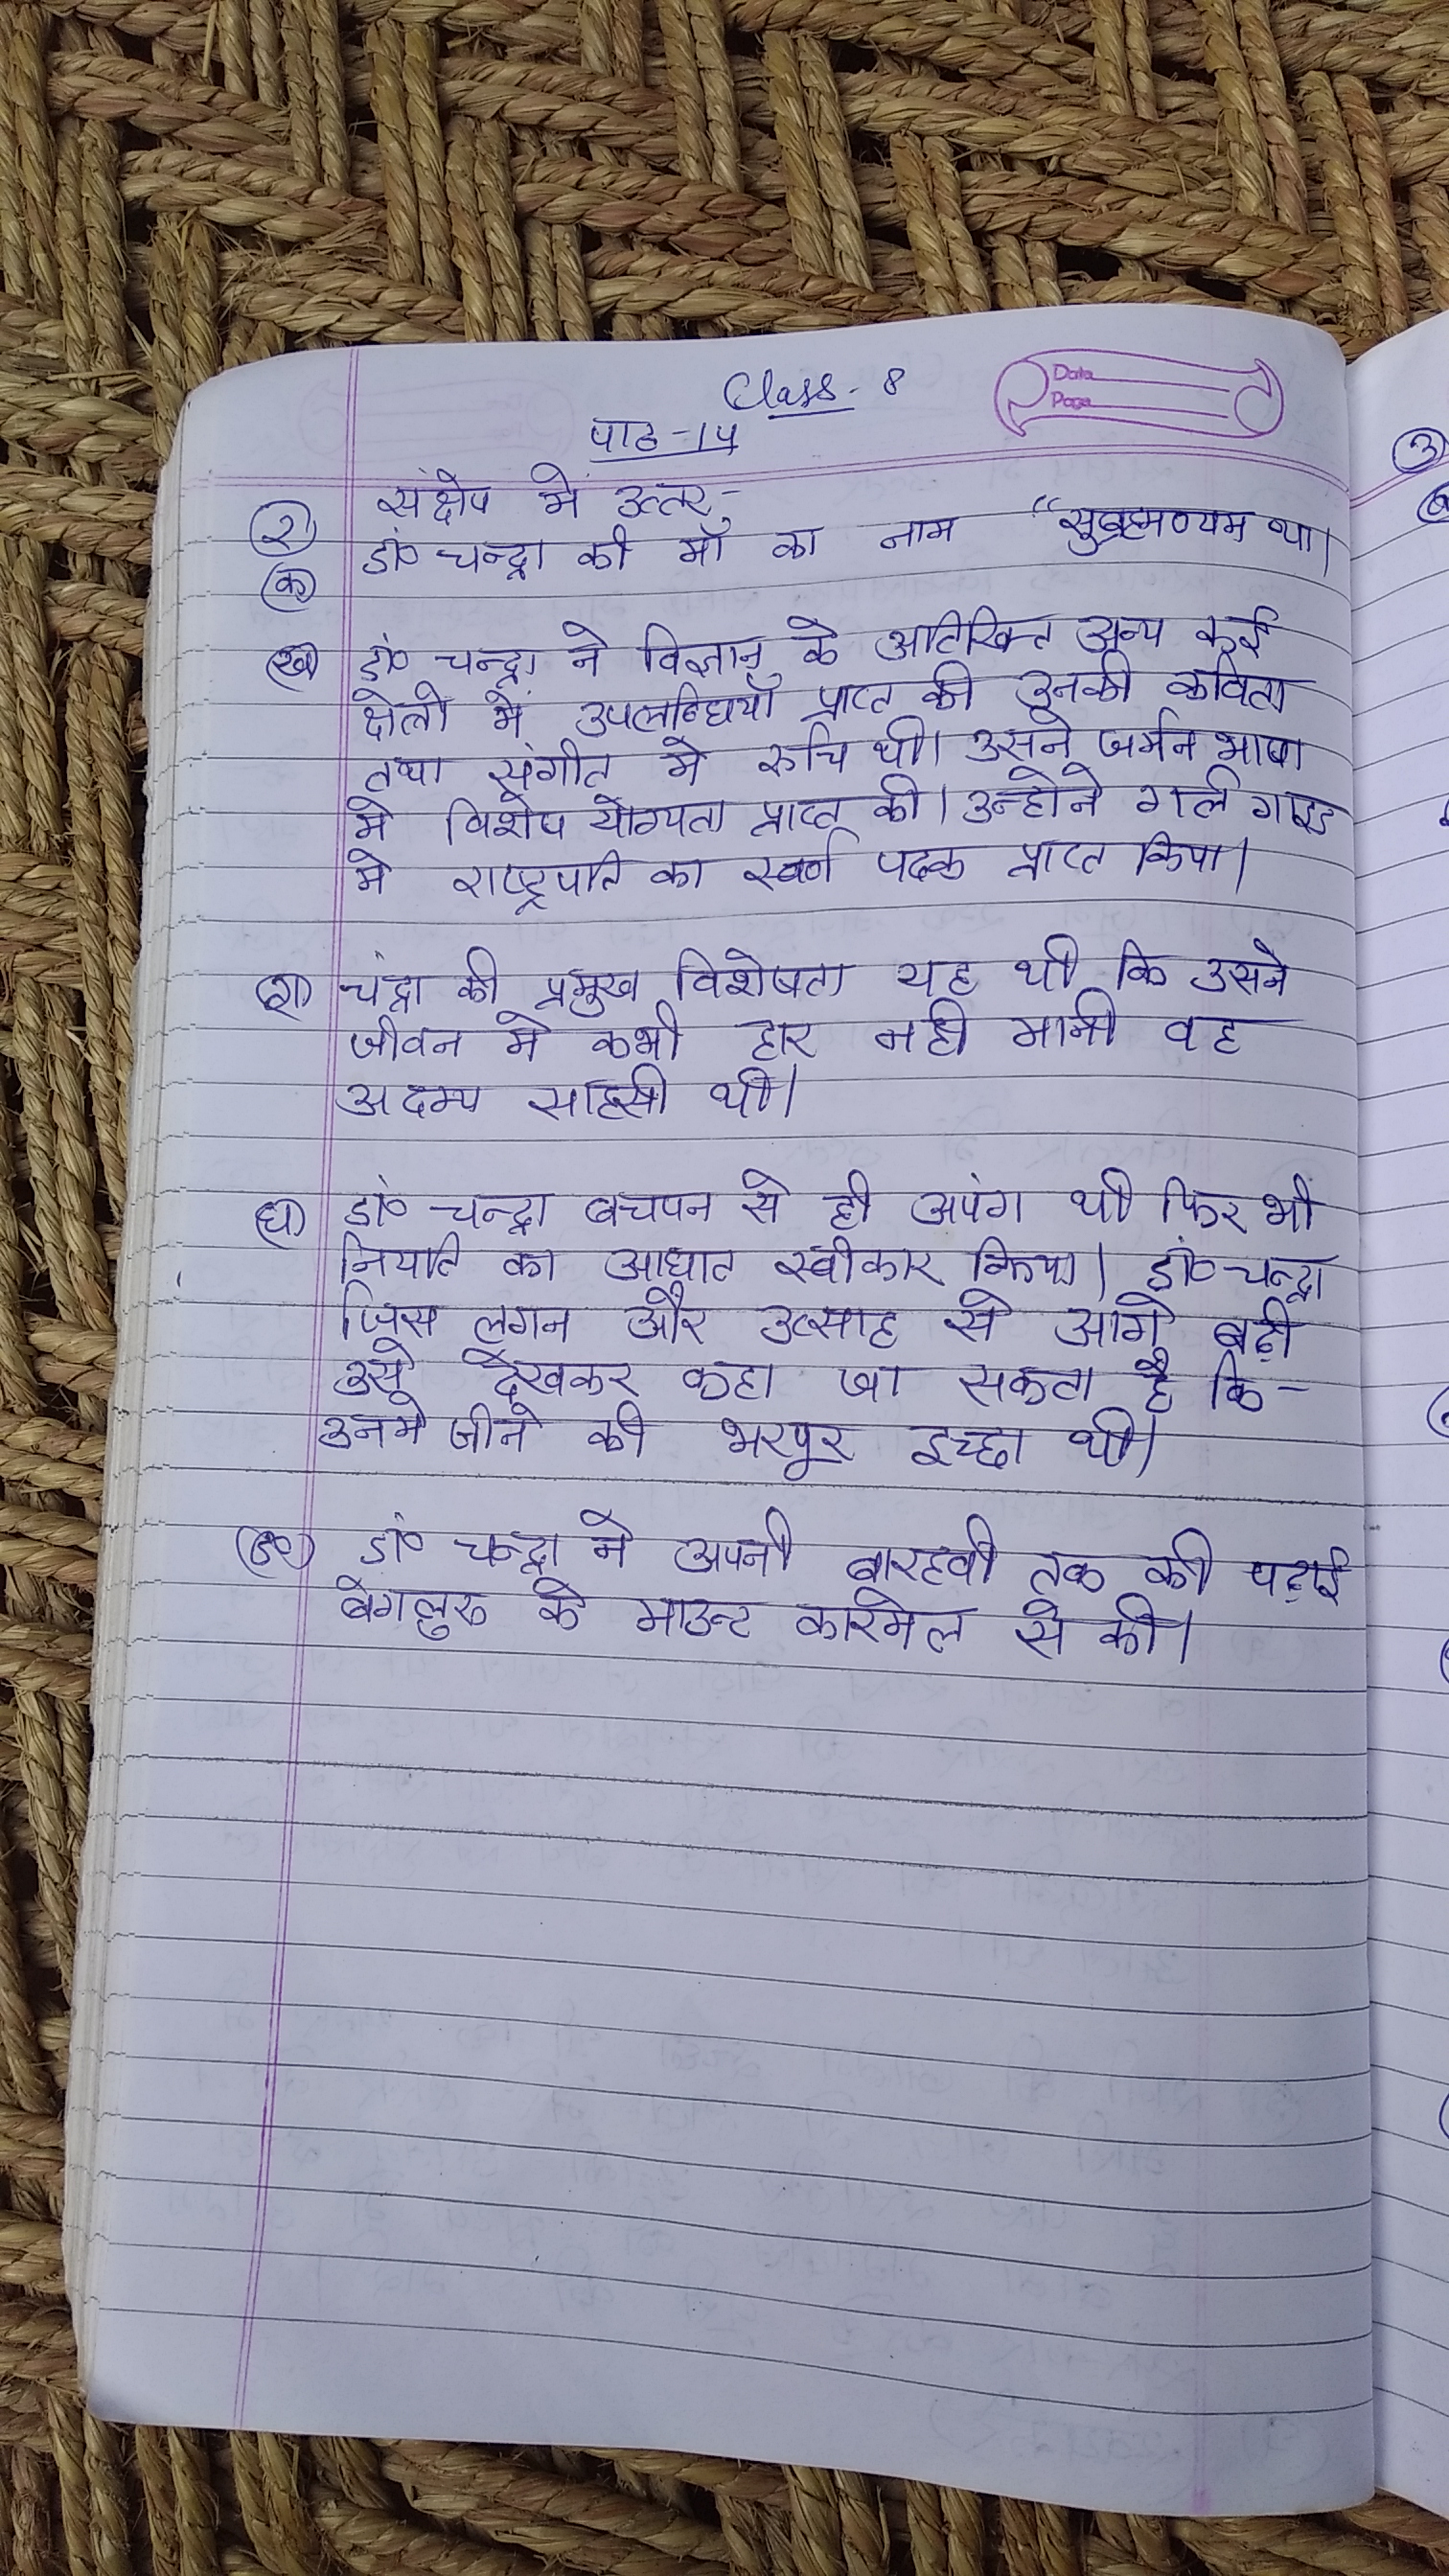 Class - 8
Date
Page
पाठ -14
२ संक्षेप में उत्तर-
(क) डॉ० चन्द्रा की माँ का नाम "सुब्रह्मण्यम था।
(ख) डॉ० चन्द्रा ने विज्ञान के अतिरिक्त अन्य कई
क्षेत्रो में उपलब्धियाँ प्राप्त की उनकी कविता
तथा संगीत मे रुचि थी। उसने जर्मन भाषा
मे विशेष योग्यता प्राप्त की। उन्होने गर्ल गाइड
मे राष्ट्रपति का स्वर्ण पदक प्राप्त किया।
(ग) चंद्रा की प्रमुख विशेषता यह थी कि उसने
जीवन मे कभी हार नही मानी वह
अदम्य साहसी थी।
(घ) डॉ० चन्द्रा बचपन से ही अपंग थी फिर भी
नियति का आघात स्वीकार किया। डॉ० चन्द्रा
जिस लगन और उत्साह से आगे बढ़ी
उसे देखकर कहा जा सकता है कि-
उनमे जीने की भरपूर इच्छा थी।
(ङ) डॉ० चन्द्रा ने अपनी बारहवी तक की पढ़ाई
बेंगलुरु के माउन्ट कारमेल से की।
३